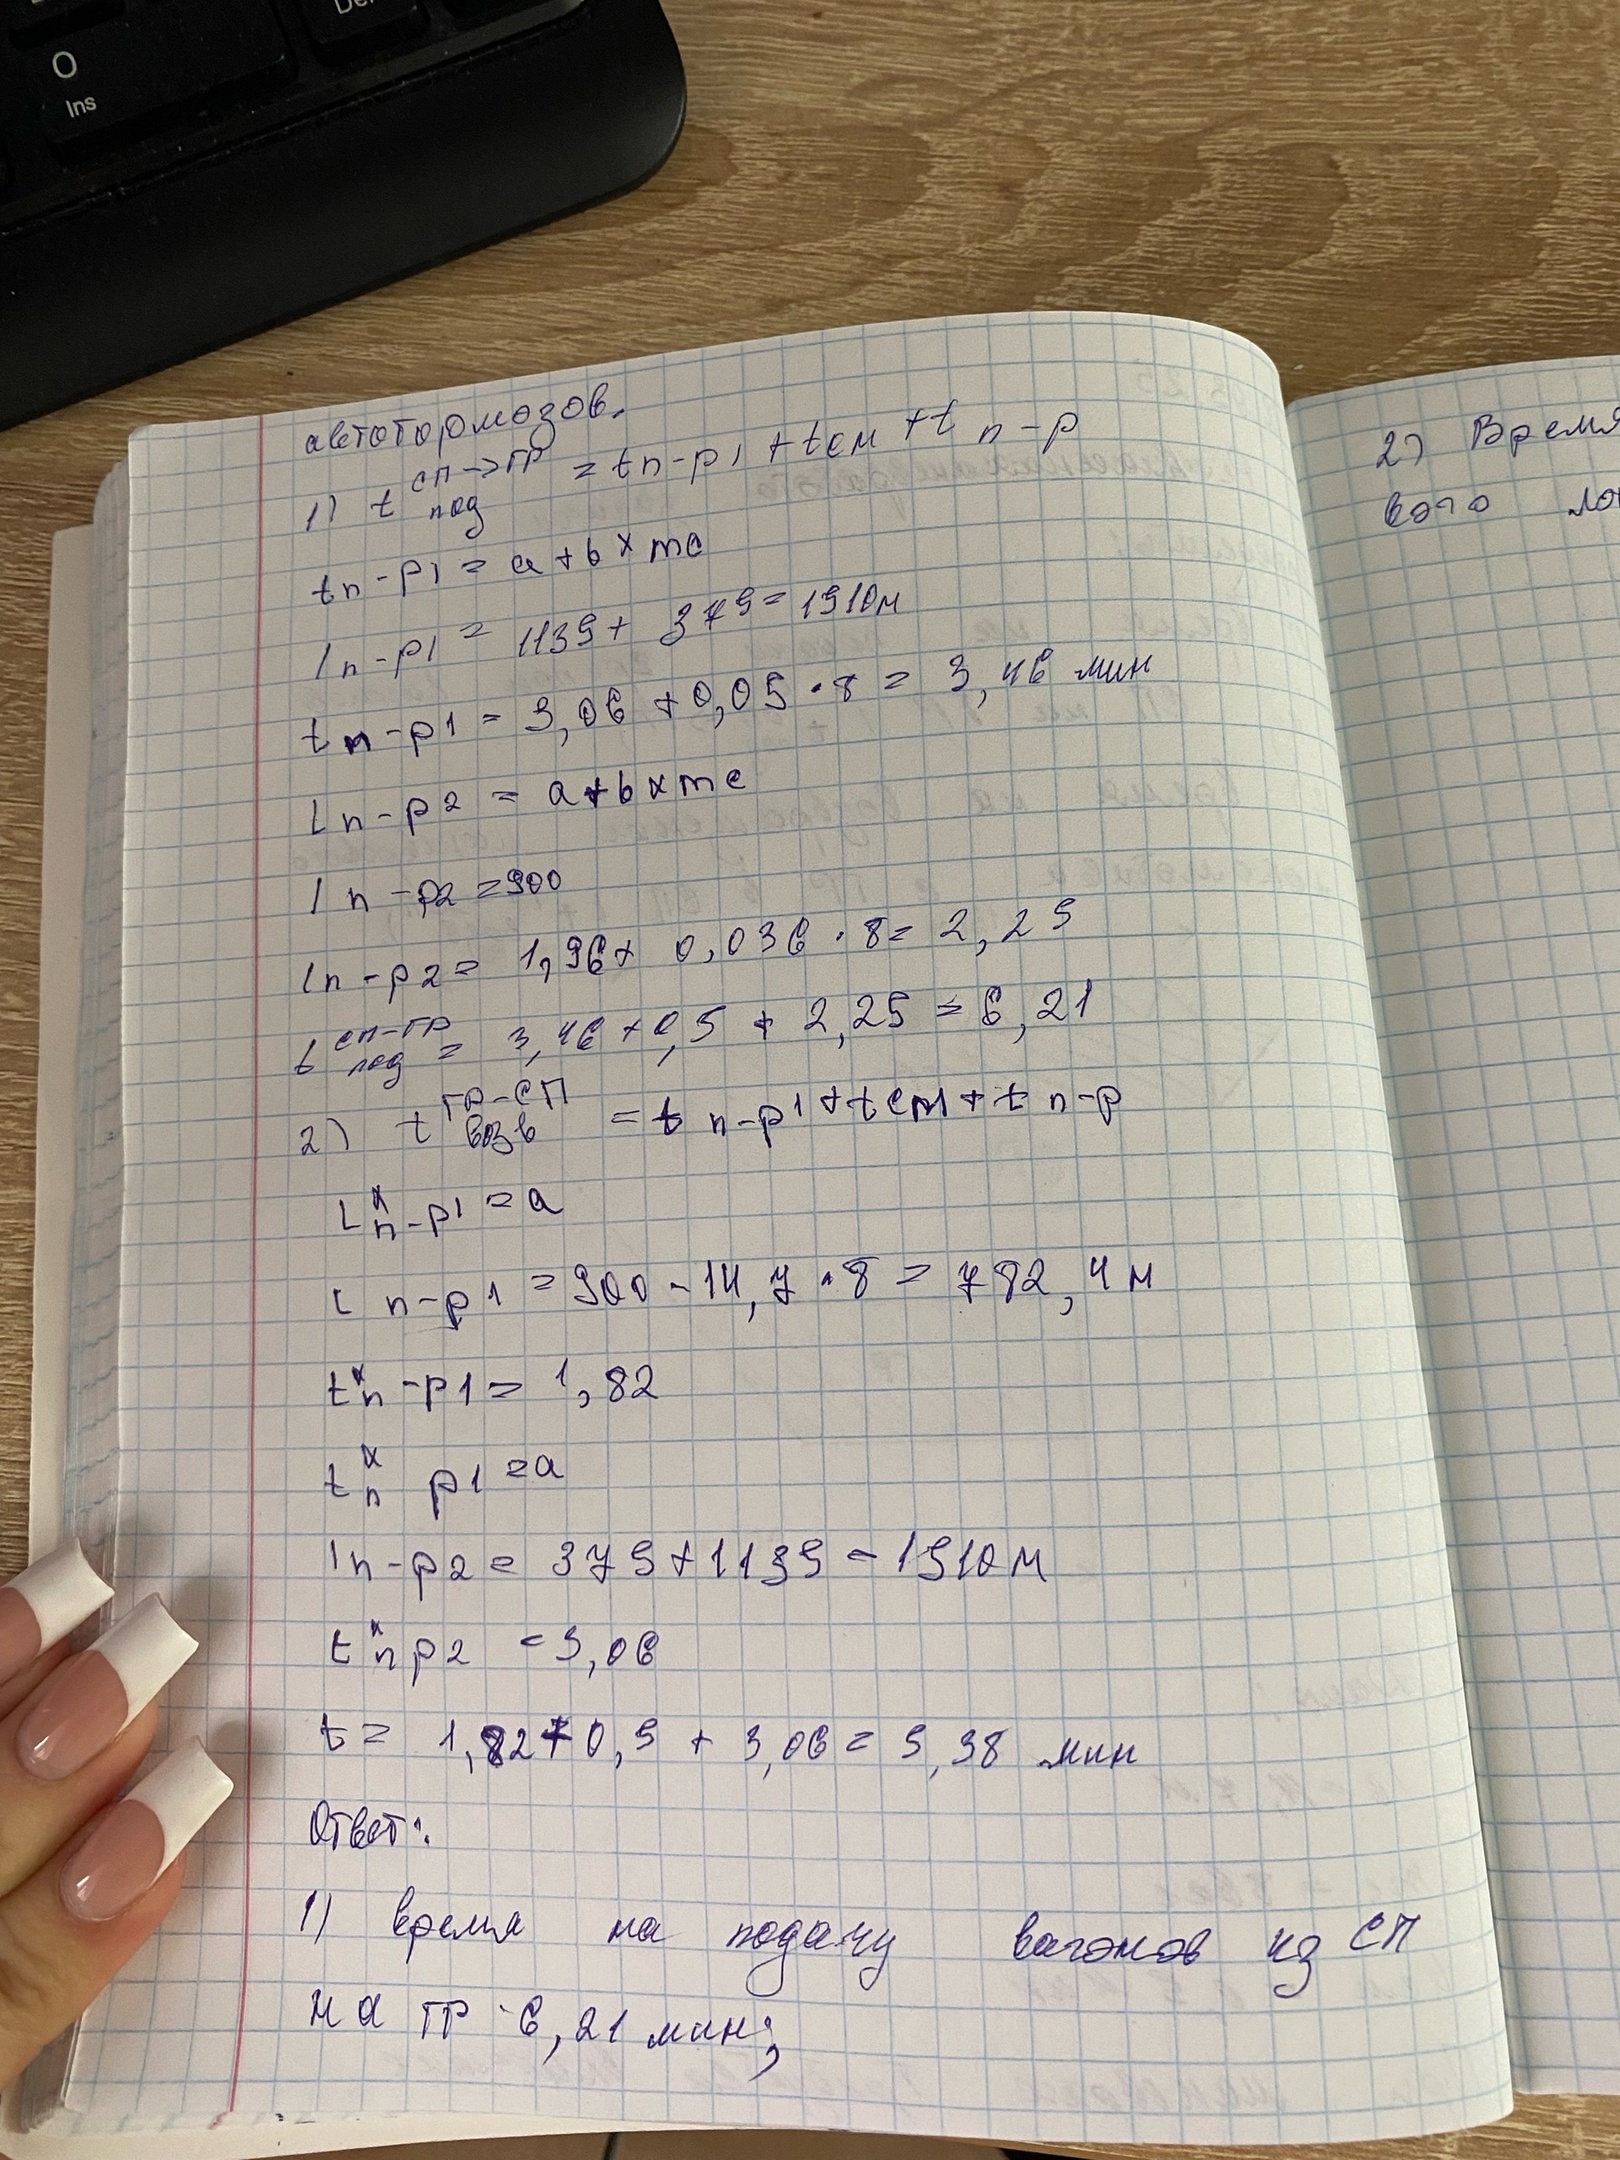 O
Ins
Del
автотормозов.
1) t под СП->ГР = tп-р1 + tсм + t п-р
tп-р1 = a+b×mc
lп-р1 = 1135+ 375=1510м
tп-р1 = 3,06 +0,05·8= 3,46 мин
Lп-р2 = a+b×mc
lп-р2=900
lп-р2= 1,96+ 0,036·8= 2,25
t под СП-ГР = 3,46+0,5 + 2,25 = 6,21
2) t возв ГР-СП = t п-р1+tсм+t п-р
L п-р1 x = a
L п-р1 = 900-14,7·8 = 782,4м
t п-р1 x = 1,82
t п р1 x =a
lп-р2= 375+1135=1510м
t п р2 x =3,06
t= 1,82+0,5 + 3,06= 5,38 мин
Ответ:
1) время на подачу вагонов из СП
на ГР -6,21 мин;
2) Время
вого